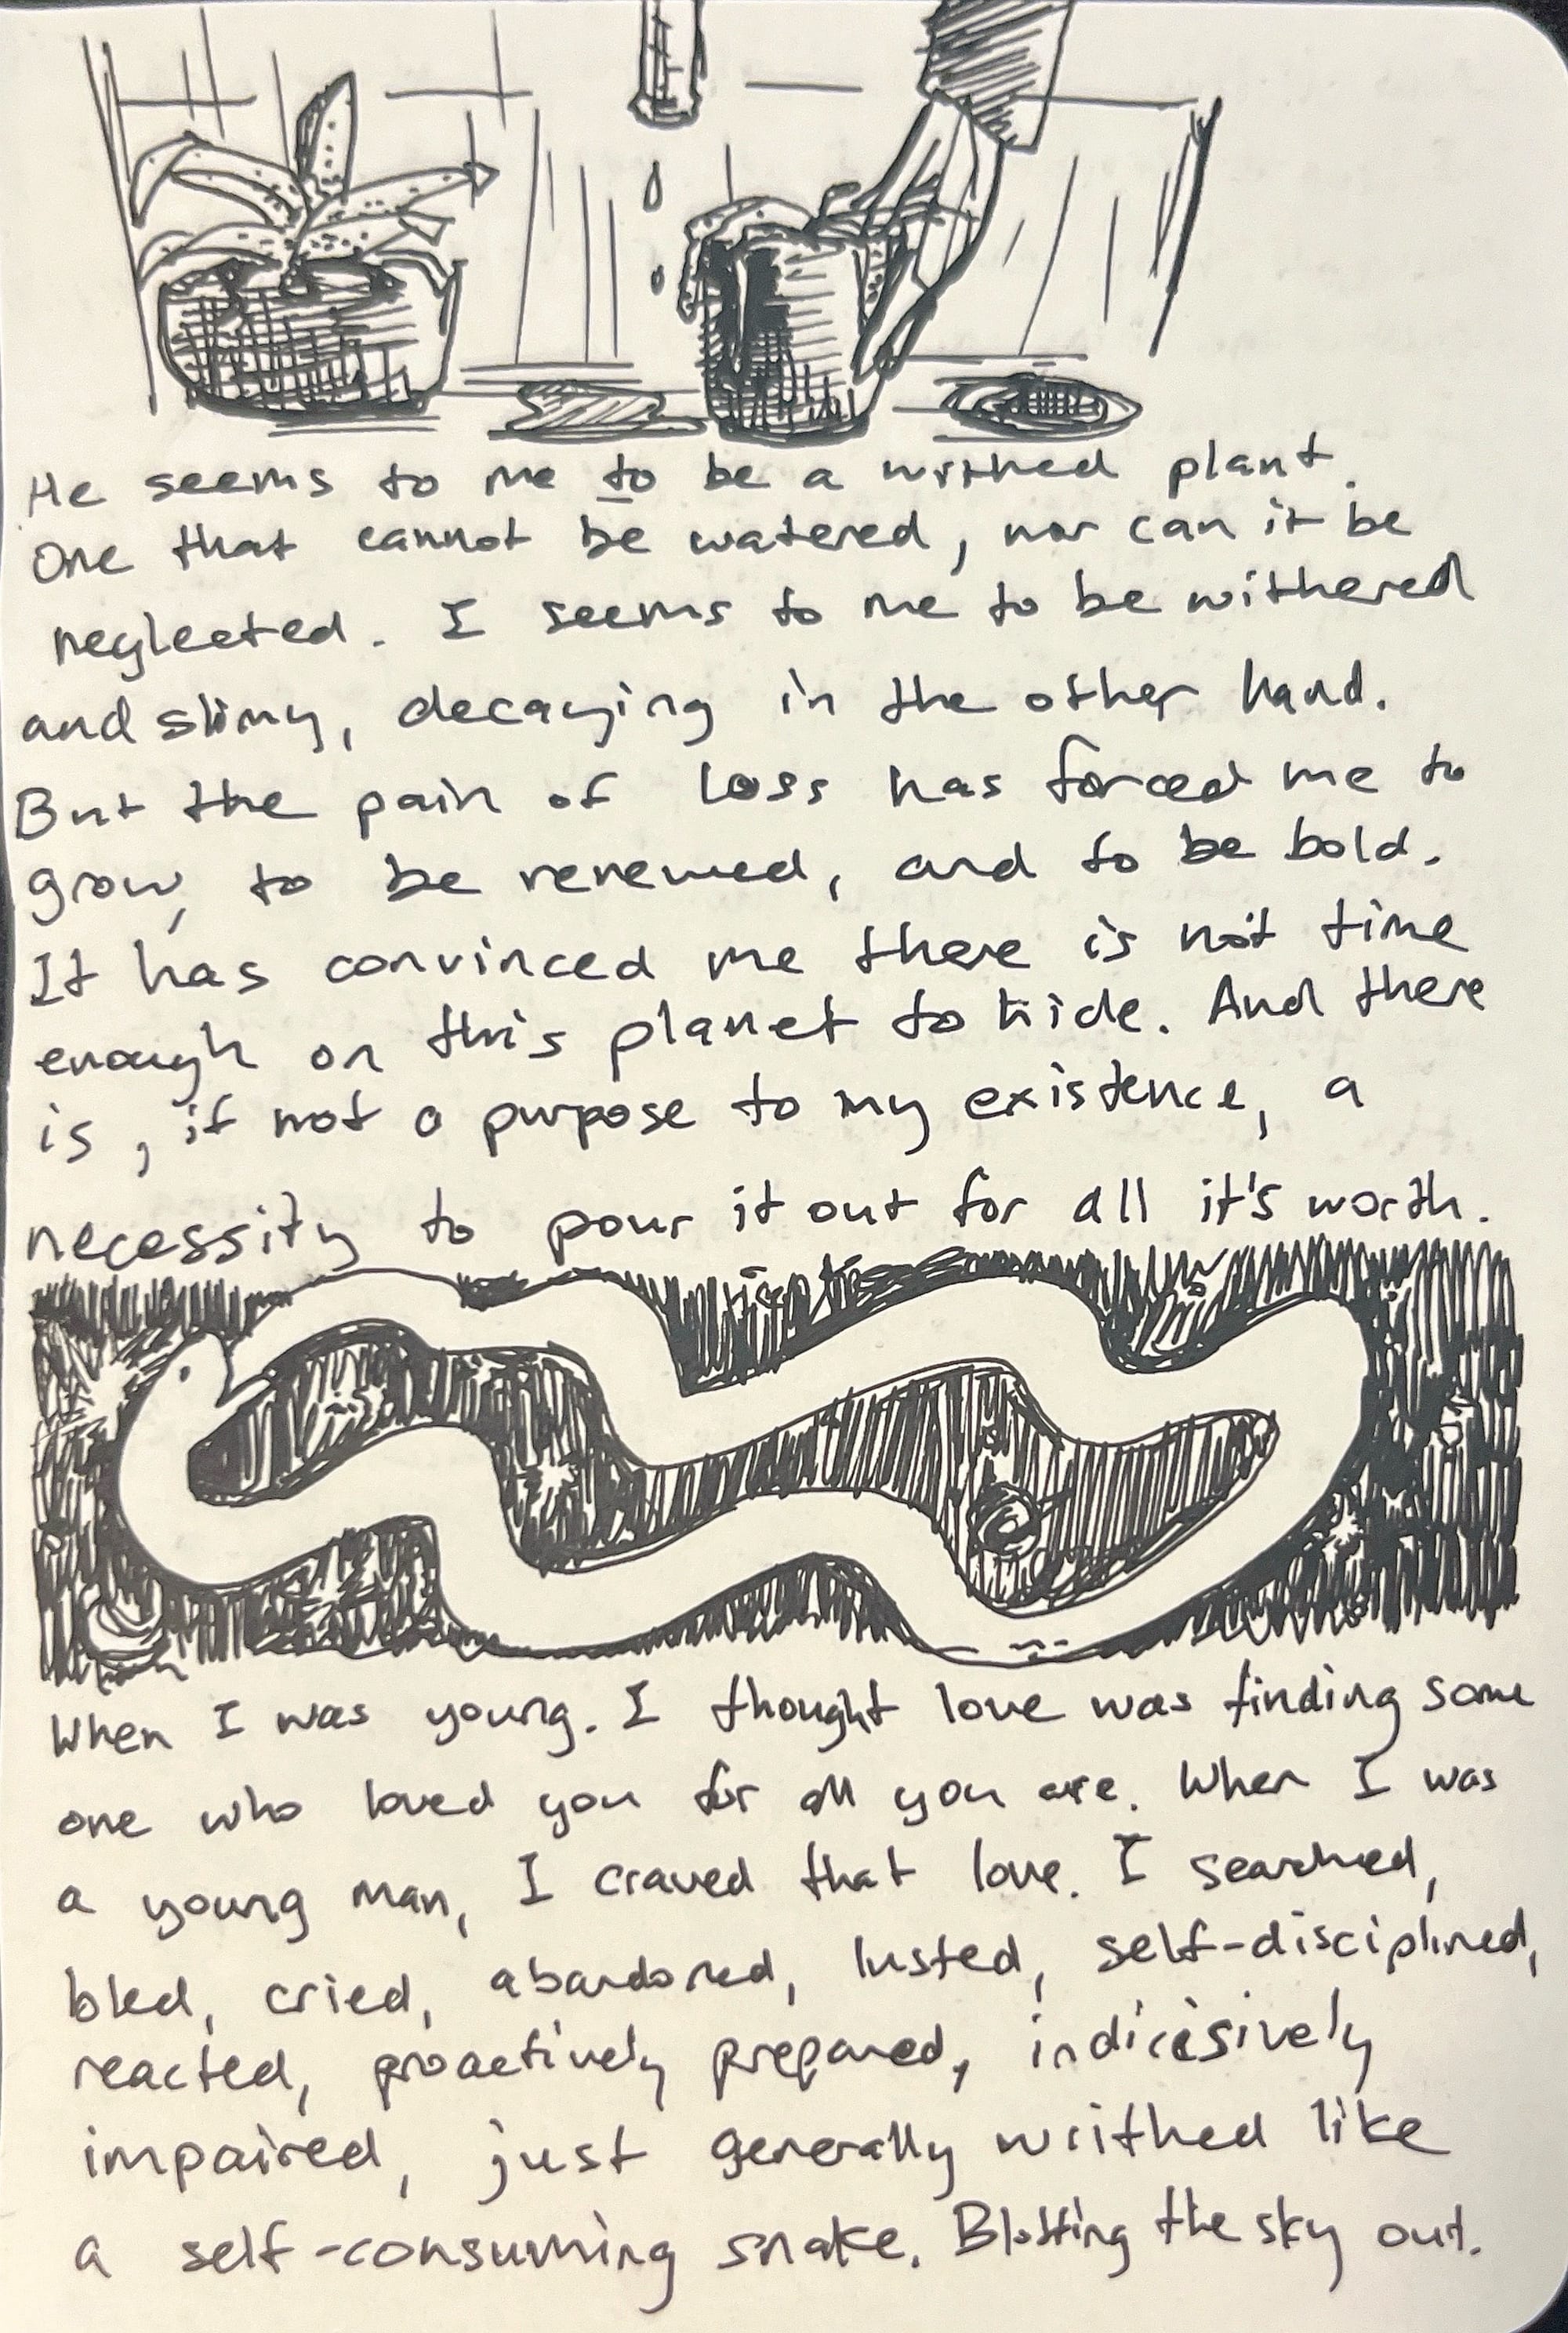 He seems to me to be a writhed plant.
One that cannot be watered, nor can it be
neglected. I seems to me to be withered
and slimy, decaying in the other hand.
But the pain of loss has forced me to
grow, to be renewed, and to be bold.
It has convinced me there is not time
enough on this planet to hide. And there
is, if not a purpose to my existence, a
necessity to pour it out for all it's worth.
When I was young. I thought love was finding some
one who loved you for all you are. When I was
a young man, I craved that love. I searched,
bled, cried, abandoned, lusted, self-disciplined,
reacted, proactively prepared, indicisively
impaired, just generally writhed like
a self-consuming snake. Blotting the sky out.